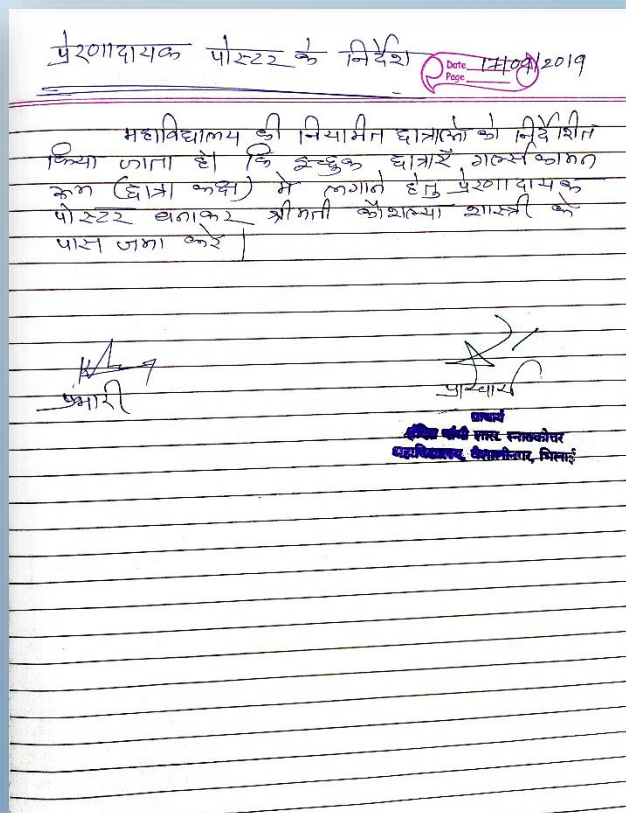 प्रेरणादायक पोस्टर के निर्देश
Date 17/09/2019
Page
महाविद्यालय की नियामित छात्राओं को निर्देशित
किया जाता है। कि इच्छुक छात्राएँ गर्ल्स कामन
रूम (छात्रा कक्ष) में लगाने हेतु प्रेरणादायक
पोस्टर बनाकर श्रीमती कौशल्या शास्त्री के
पास जमा करें |
प्रभारी
प्राचार्य
प्राचार्य
इंदिरा गांधी शास. स्नातकोत्तर
महाविद्यालय, वैशालीनगर, भिलाई